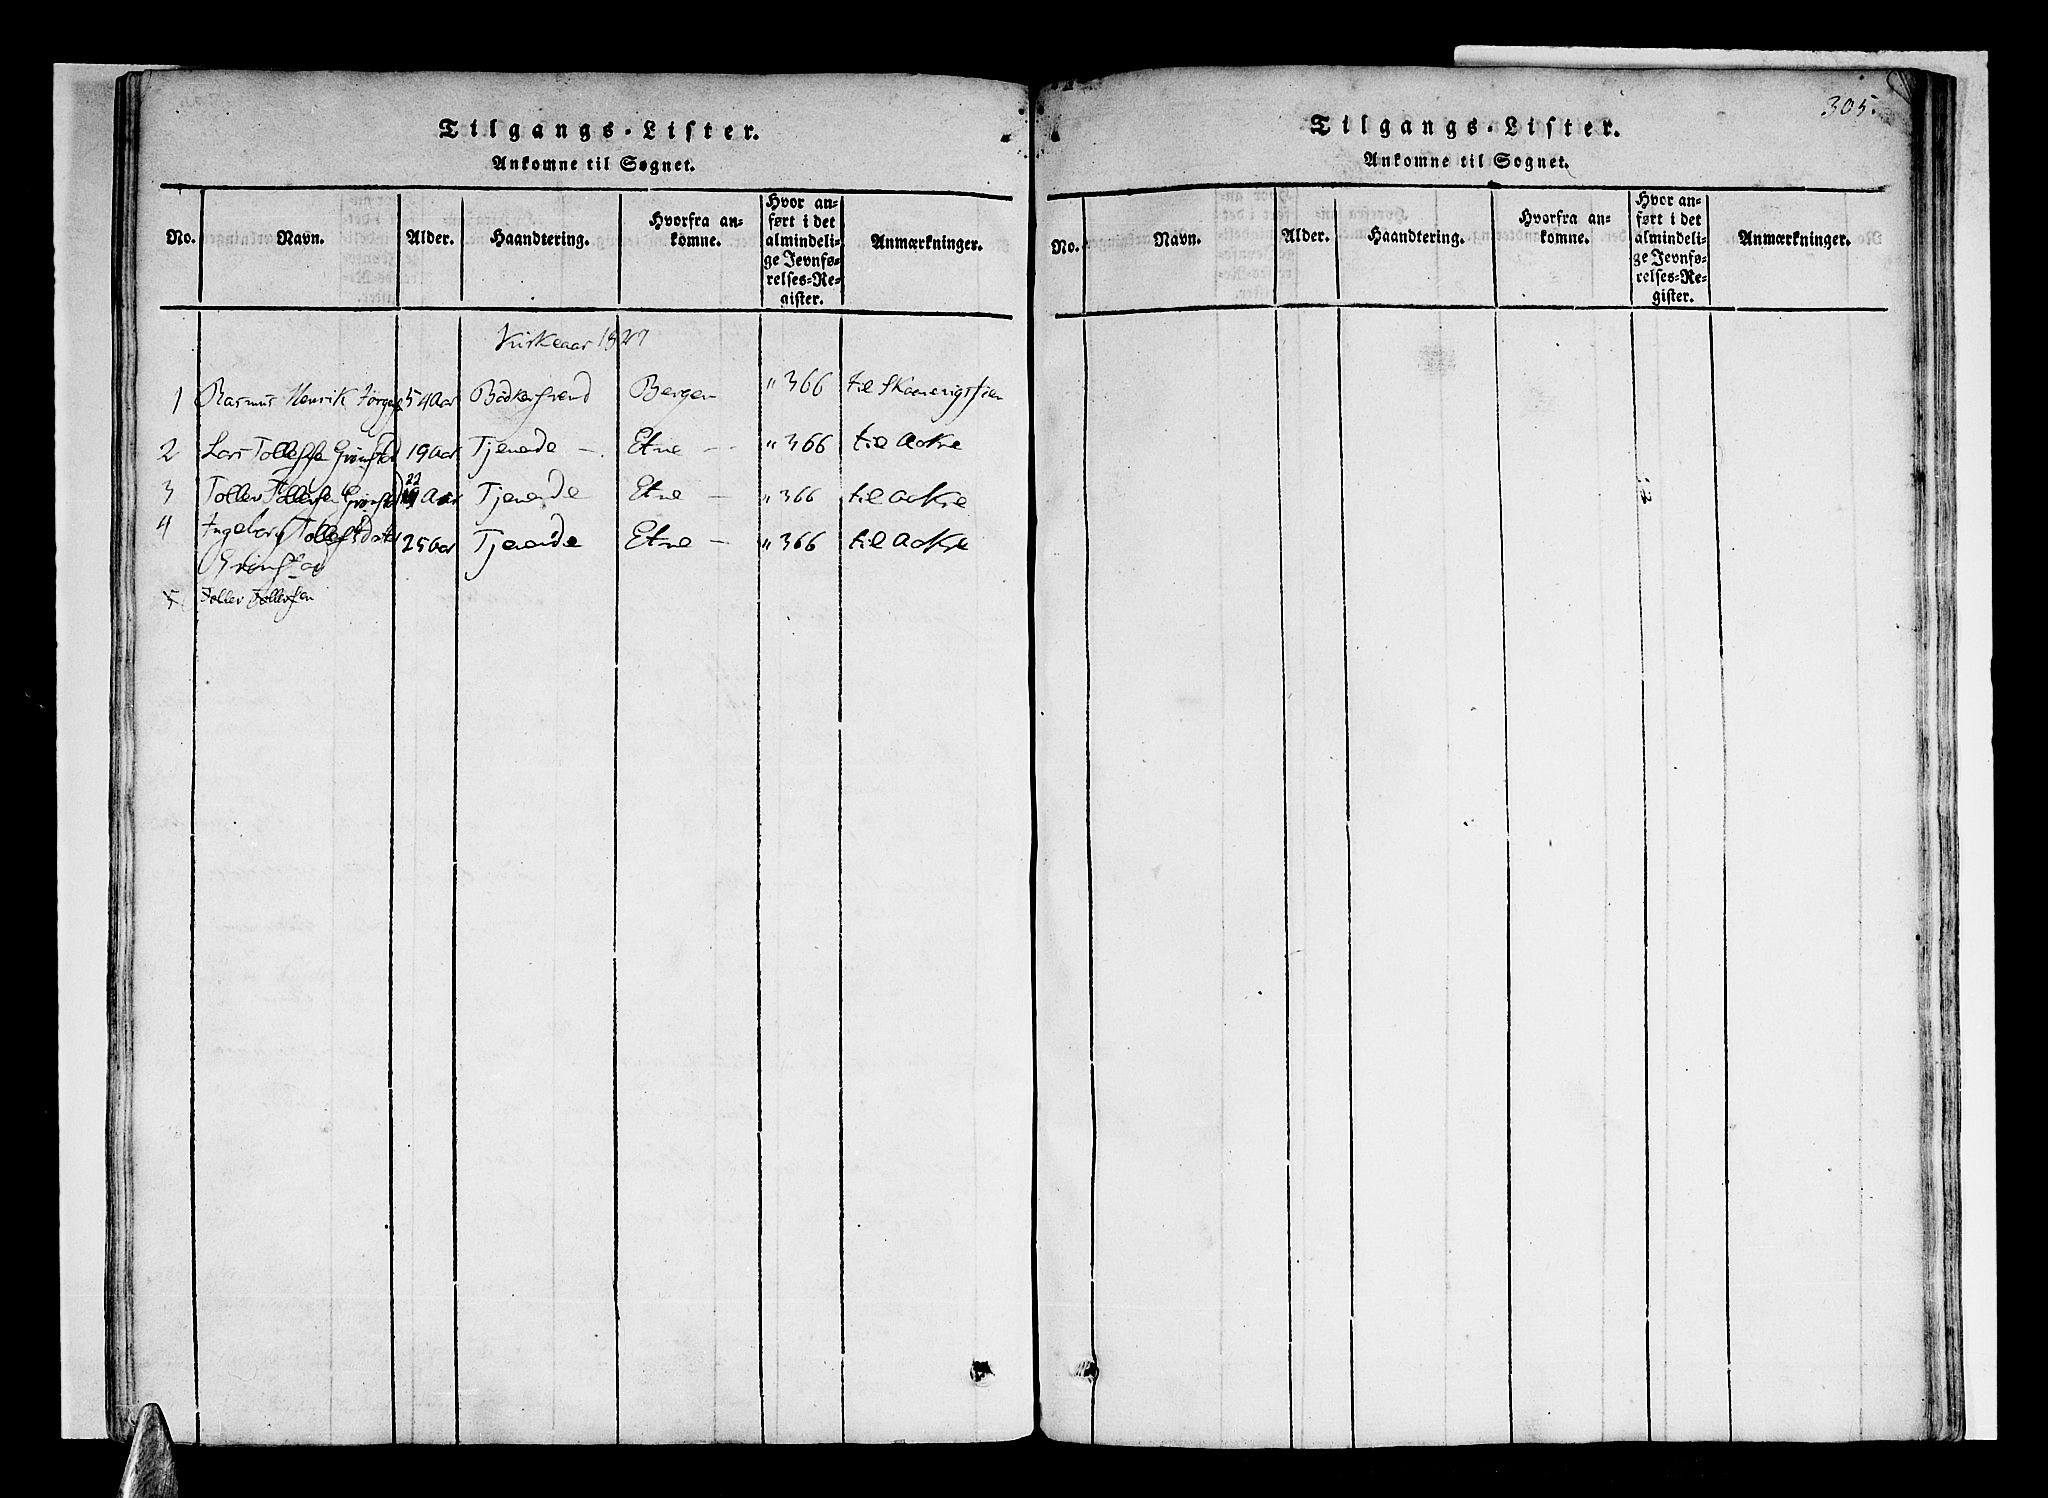 Tilgangs-Lister.
Ankomne til Sognet.
No. Navn. Alder. Haandtering. Hvorfra an-
komne. Hvor an-
ført i det
almindeli-
ge Jevnfø-
relses-Re-
gister. Anmærkninger.
Kirkeaar 1827
1 Rasmus Henrik Jørgens 54 Aar Bödkersvend Bergen " 366 til
2 Lars Tollefsen Grinsted 19 Aar Tjenende - Etne - - " 366 til Aakre
3 Tollev Grinsted 22 Aar Tjenende Etne - " 366 til Aakre
4 Ingeborg Tollefsdatter 25 Aar Tjenende Etne - " 366 til Aakre
Grinstad
5 Tollev Tollefsen
305.
Tilgangs-Lister.
Ankomne til Sognet.
No. Navn. Alder. Haandtering. Hvorfra an-
komne. Hvor an-
ført i det
almindeli-
ge Jevnfø-
relses-Re-
gister. Anmærkninger.